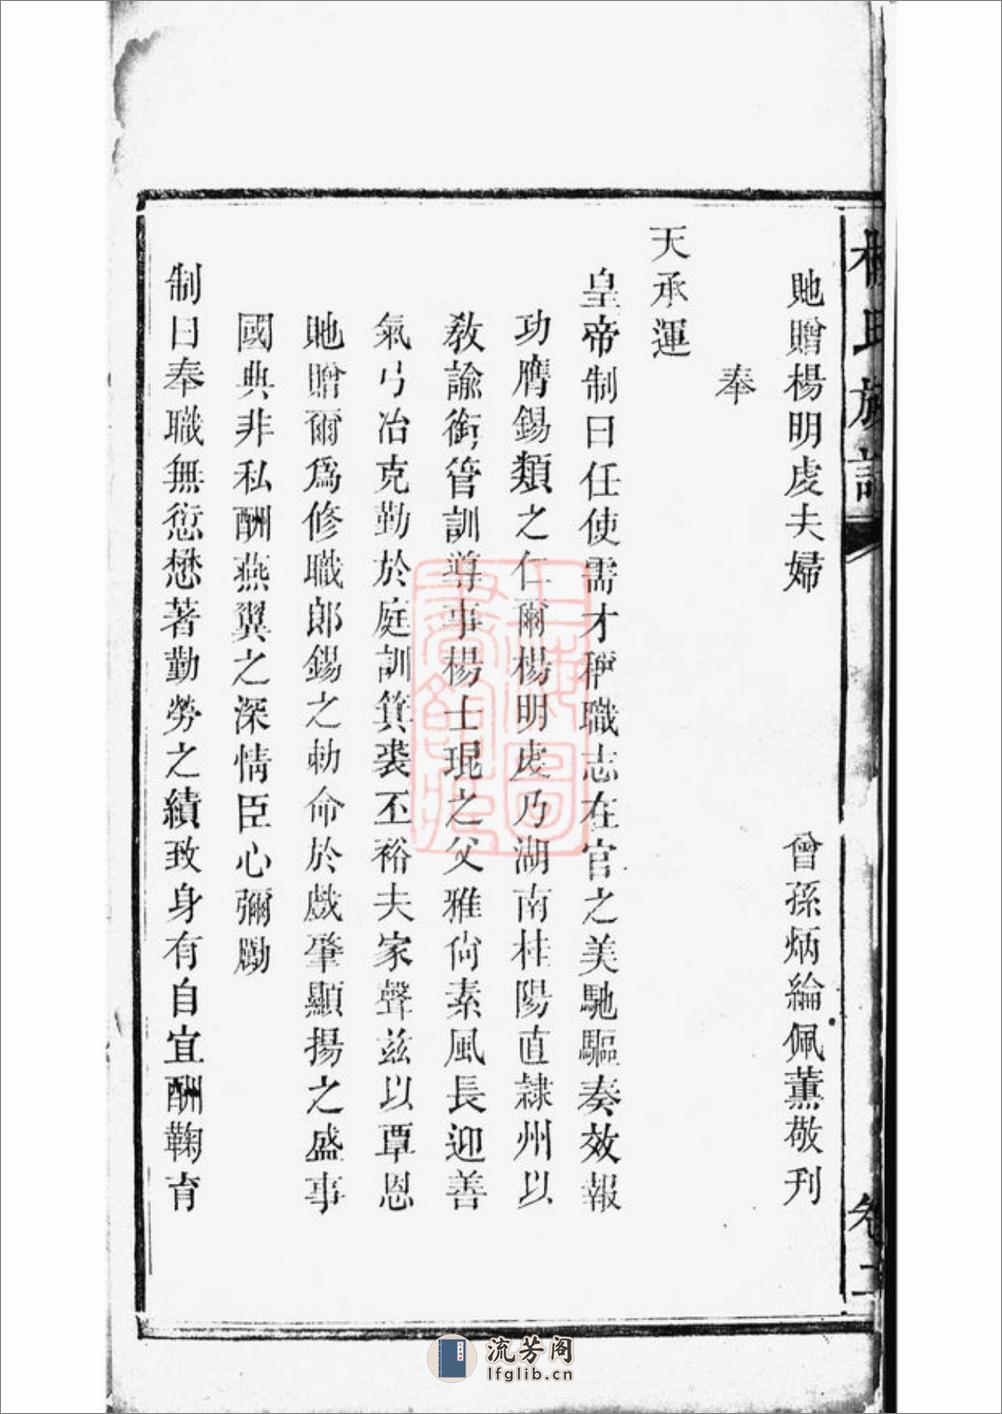 楊氏族譜
卷二
貤贈楊明虔夫婦
曾孫炳綸佩薰敬刊
奉
天承運
皇帝制曰任使需才穪職志在官之美馳驅奏效報
功膺錫類之仁爾楊明虔乃湖南桂陽直隸州以
敎諭銜管訓導事楊士琨之父雅尙素風長迎善
氣弓冶克勤於庭訓箕裘丕裕夫家聲茲以覃恩
貤贈爾爲修職郎錫之勅命於戲肇顯揚之盛事
國典非私酬燕翼之深情臣心彌勵
制曰奉職無愆懋著勤勞之績致身有自宜酬鞠育
上海圖書館藏
流芳阁
lfglib.cn